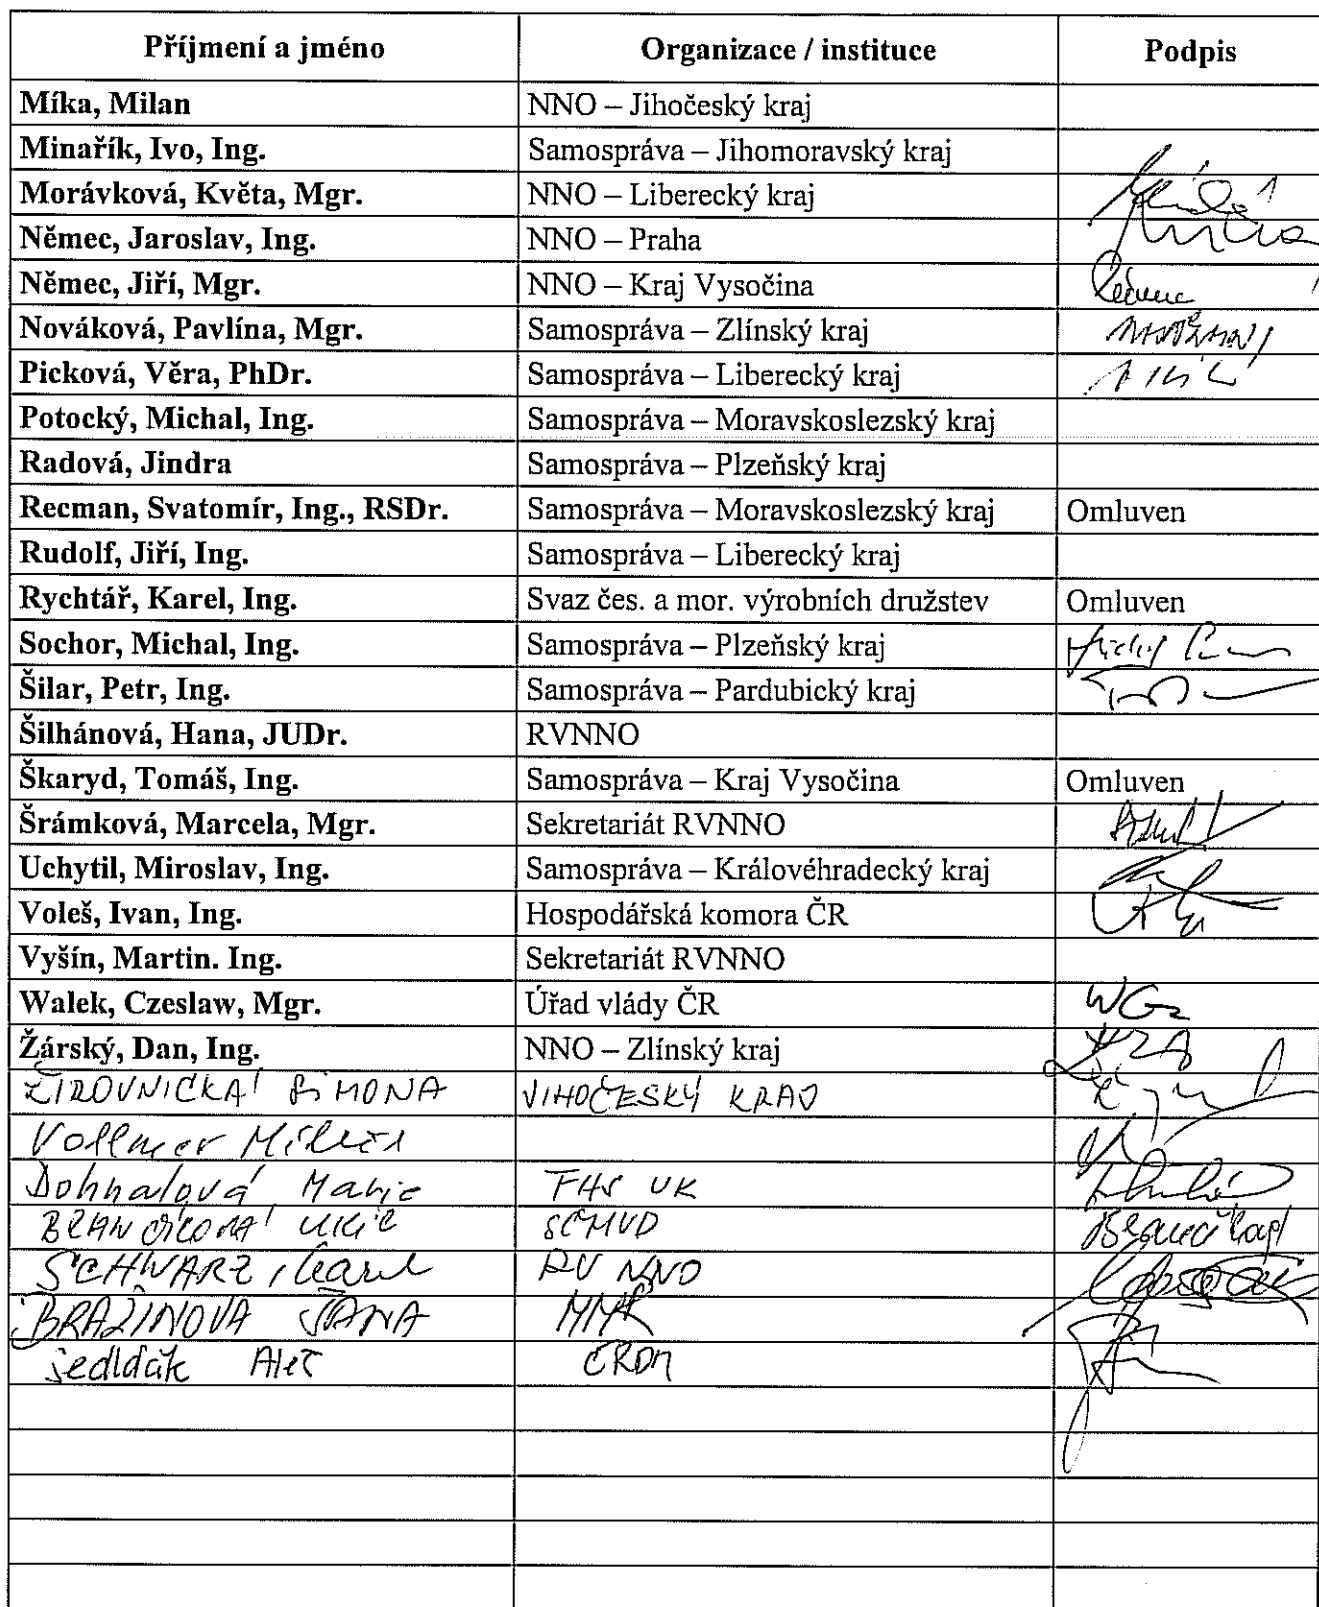 Příjmení a jméno Organizace / instituce Podpis
Míka, Milan NNO – Jihočeský kraj
Minařík, Ivo, Ing. Samospráva – Jihomoravský kraj
Morávková, Květa, Mgr. NNO – Liberecký kraj
Němec, Jaroslav, Ing. NNO – Praha
Němec, Jiří, Mgr. NNO – Kraj Vysočina
Nováková, Pavlína, Mgr. Samospráva – Zlínský kraj
Picková, Věra, PhDr. Samospráva – Liberecký kraj
Potocký, Michal, Ing. Samospráva – Moravskoslezský kraj
Radová, Jindra Samospráva – Plzeňský kraj
Recman, Svatomír, Ing., RSDr. Samospráva – Moravskoslezský kraj Omluven
Rudolf, Jiří, Ing. Samospráva – Liberecký kraj
Rychtář, Karel, Ing. Svaz čes. a mor. výrobních družstev Omluven
Sochor, Michal, Ing. Samospráva – Plzeňský kraj
Šilar, Petr, Ing. Samospráva – Pardubický kraj
Šilhánová, Hana, JUDr. RVNNO
Škaryd, Tomáš, Ing. Samospráva – Kraj Vysočina Omluven
Šrámková, Marcela, Mgr. Sekretariát RVNNO
Uchytil, Miroslav, Ing. Samospráva – Královéhradecký kraj
Voleš, Ivan, Ing. Hospodářská komora ČR
Vyšín, Martin. Ing. Sekretariát RVNNO
Walek, Czeslaw, Mgr. Úřad vlády ČR
Žárský, Dan, Ing. NNO – Zlínský kraj
ŽIROVNICKÁ SIMONA JIHOČESKÝ KRAJ
Vollmer
Dohnalová Marie FHS UK
SČMVD
SCHWARZ, Karel RV NNO
BRAŽINOVA JANA MMR
Sedláček Aleš ČRDM